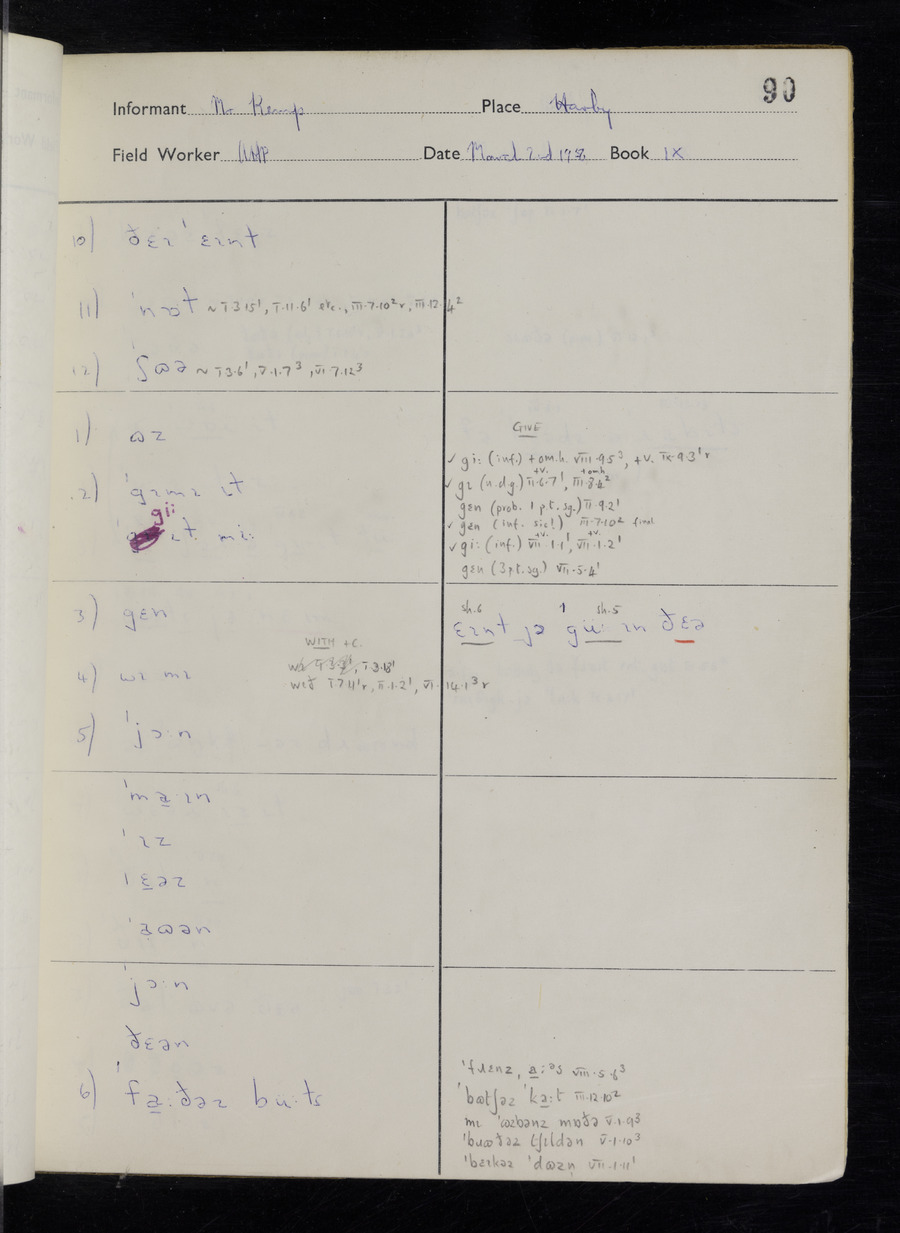 90
Informant Mr Kemp Place Harby
Field Worker Date March 2nd Book IX
10) ðɛɪ ˈɛɪnt
11) ˈnɔt ~ I·3·15¹, I·11·6¹ etc., III·7·10² r, III·12·4²
12) ˈʃɷə ~ I·3·6¹, V·1·7³, VI·7·12³
1) ɷz
2) ˈgɪmɪ ɪt
gi:
ɪt mi:
GIVE
✓ gi: (inf.) + om.h. VIII·9·5³, +V. IX·9·3¹ r
+V. + om.h
✓ gɪ (n.d.g) II·6·7¹, III·8·4²
gɛn (prob. 1 pt. sg.) II·9·2¹
✓ gɛn (inf. sic!) III·7·10² final
+V. +V.
✓ gi: (inf.) VII·1·1¹, VII·1·2¹
gɛn (3 pt. sg.) VII·5·4¹
3) gɛn
sh.6 sh.5
ɛɪnt jə ˈgü: ɪn ðɛə
WITH +C.
I·3·13¹
4) wɪ mɪ
wɪð I·7·11¹ r, II·1·2¹, VI·14·1³ r
5) ˈjɔ:n
ˈma·ɪn
ˈɪz
ˈɛəz
ˈaɷən
ˈjɔ:n
ðɛən
6) ˈfa:ðəz bu:ts
ˈfɹɛnz, a:əs VIII·5·8³
ˈbɷtʃəz ˈka:t III·12·10²
mɪ ˈɷzbənz mɷðə V·1·9³
ˈbɹɷðəz tʃɪldən V·1·10³
ˈbɛɪkəz ˈdɷzn̩ VII·1·11¹